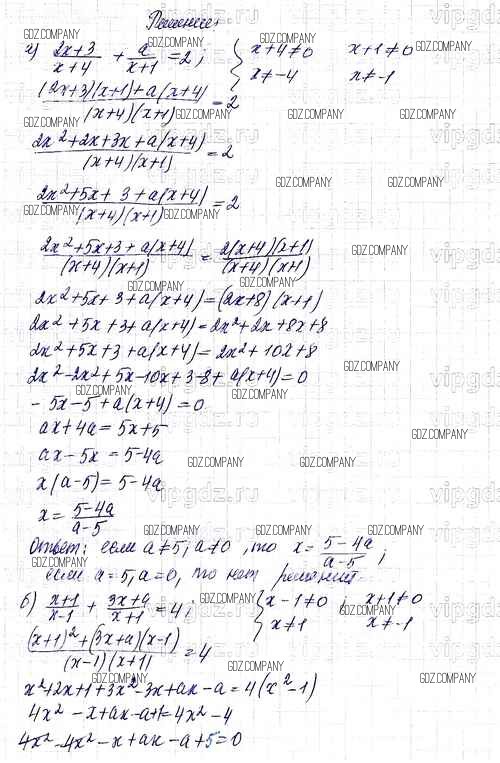 Решение:
а) (2x+3)/(x+4) + a/(x+1) = 2; { x+4≠0 x+1≠0
x≠-4 x≠-1
((2x+3)(x+1)+a(x+4))/((x+4)(x+1)) = 2
(2x²+2x+3x+a(x+4))/((x+4)(x+1)) = 2
(2x²+5x+3+a(x+4))/((x+4)(x+1)) = 2
(2x²+5x+3+a(x+4))/((x+4)(x+1)) = 2(x+4)(x+1)/((x+4)(x+1))
2x²+5x+3+a(x+4)=(2x+8)(x+1)
2x²+5x+3+a(x+4)=2x²+2x+8x+8
2x²+5x+3+a(x+4)=2x²+10x+8
2x²-2x²+5x-10x+3-8+a(x+4)=0
-5x-5+a(x+4)=0
ax+4a=5x+5
ax-5x=5-4a
x(a-5)=5-4a
x=(5-4a)/(a-5)
Ответ: если a≠5, a≠0, то x=(5-4a)/(a-5);
если a=5, a=0, то нет решений.
б) (x+1)/(x-1) + (3x+a)/(x+1) = 4; { x-1≠0; x+1≠0
x≠1 x≠-1
((x+1)²+(3x+a)(x-1))/((x-1)(x+1)) = 4
x²+2x+1+3x²-3x+ax-a=4(x²-1)
4x²-x+ax-a+1=4x²-4
4x²-4x²-x+ax-a+5=0
GDZ.COMPANY
vipgdz.ru